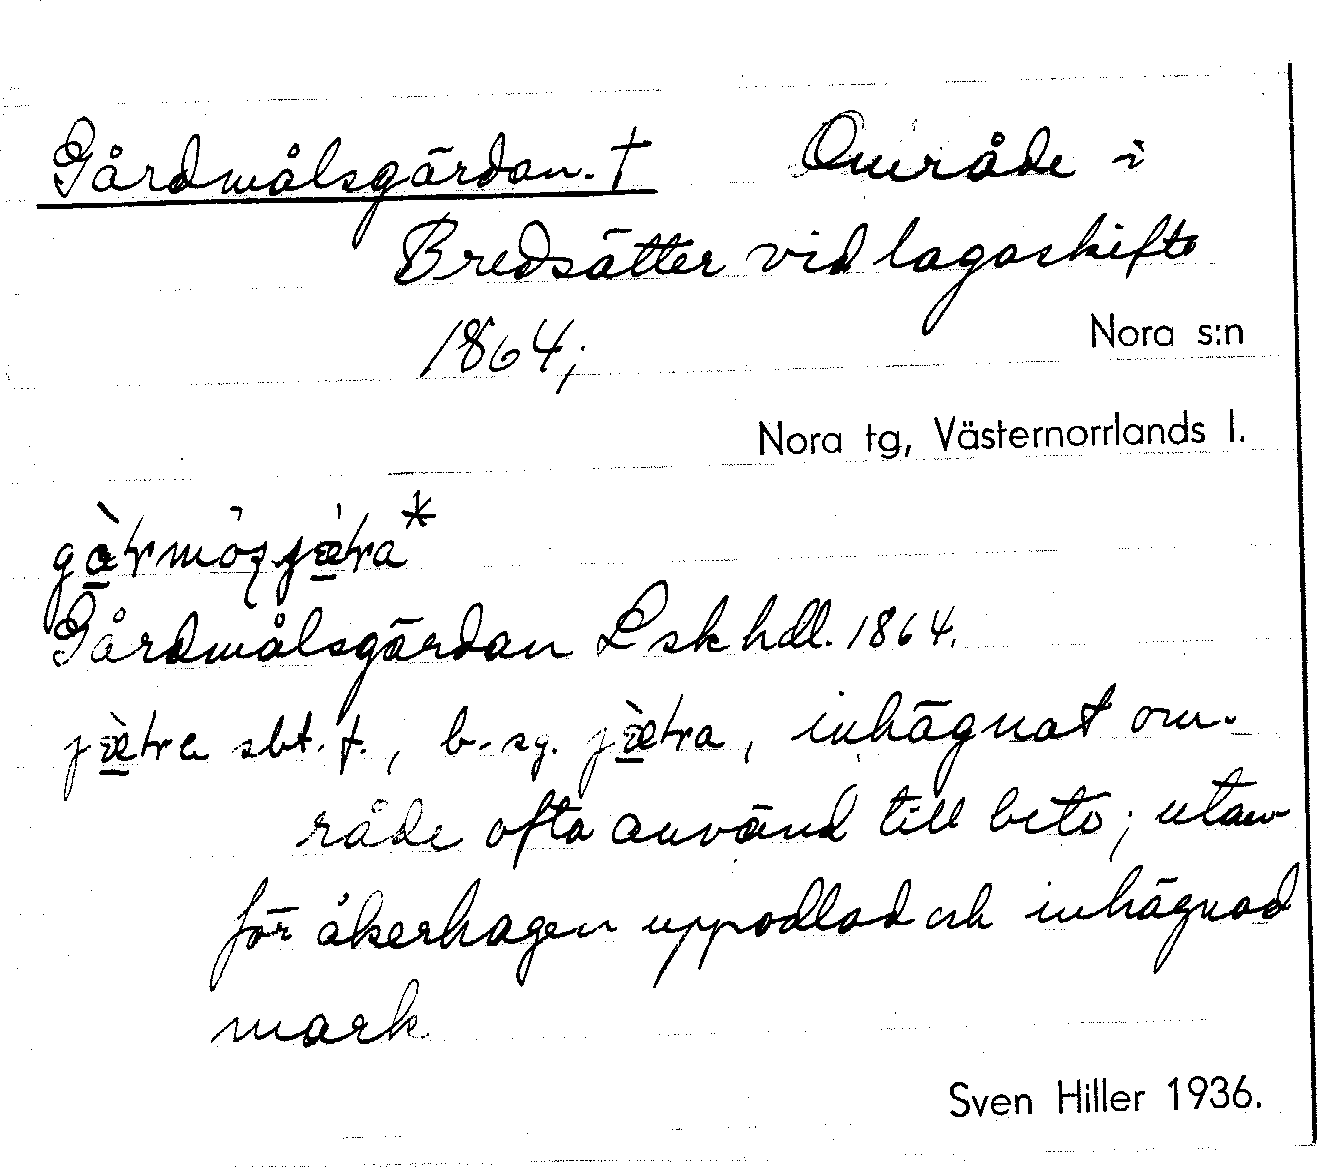 Gårdmålsgärdan. † Område i
Bredsätter vid lagaskifte
1864;
Nora s:n
Nora tg, Västernorrlands l.
Gårdmålsgärdan Lskhdl. 1864.
sbt. f., b. sg. inhägnat om-
råde ofta använd till bete; utan-
för åkerhagen uppodlad och inhägnad
mark
Sven Hiller 1936.